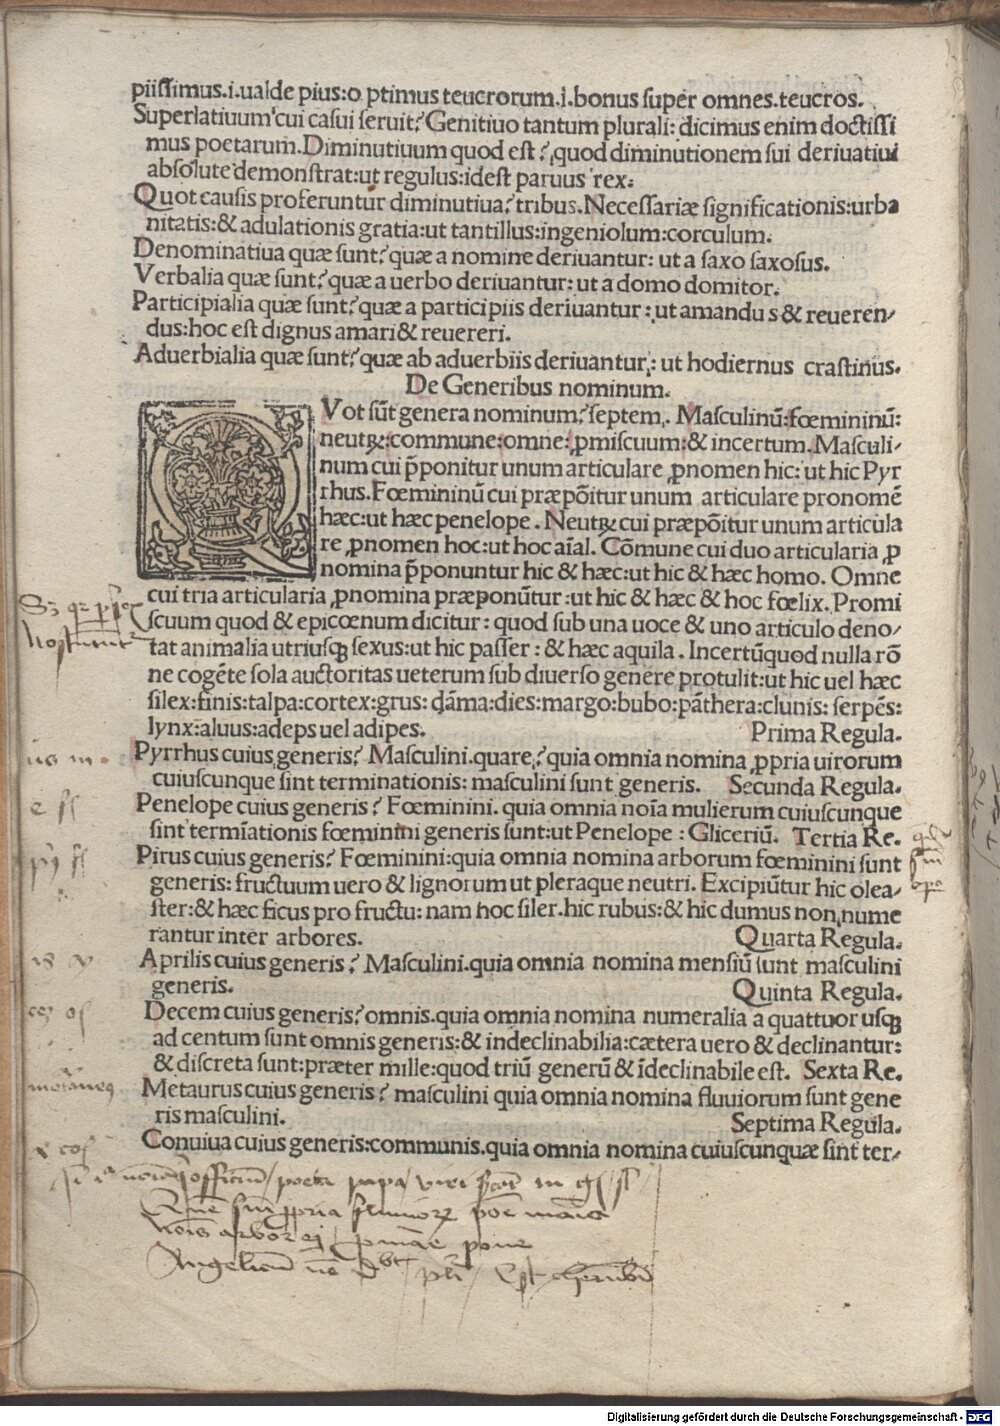 piissimus.i.ualde pius:o ptimus teucrorum.i.bonus super omnes.teucros.
Superlatiuum cui casui seruit? Genitiuo tantum plurali: dicimus enim doctissi
mus poetarum.Diminutiuum quod est? quod diminutionem sui deriuatiui
absolute demonstrat:ut regulus:idest paruus rex:
Quot causis proferuntur diminutiua? tribus.Necessariæ significationis:urba
nitatis:& adulationis gratia:ut tantillus:ingeniolum:corculum.
Denominatiua quæ sunt? quæ a nomine deriuantur: ut a saxo saxosus.
Verbalia quæ sunt? quæ a uerbo deriuantur: ut a domo domitor.
Participialia quæ sunt? quæ a participiis deriuantur: ut amandus & reueren-
dus:hoc est dignus amari & reuereri.
Aduerbialia quæ sunt? quæ ab aduerbiis deriuantur: ut hodiernus crastinus.
De Generibus nominum.
QVot sūt genera nominum? septem. Masculinū:fœmininū:
neutꝝ:commune:omne:ꝓmiscuum:& incertum.Masculi-
num cui p̄ponitur unum articulare ꝓnomen hic: ut hic Pyr
rhus.Fœmininū cui præpōitur unum articulare pronomē
hæc:ut hæc penelope. Neutꝝ cui præpōitur unum articula
re ꝓnomen hoc:ut hoc aīal. Cōmune cui duo articularia ꝓ
nomina p̄ponuntur hic & hæc:ut hic & hæc homo. Omne
cui tria articularia ꝓnomina præponūtur:ut hic & hæc & hoc fœlix.Promi
scuum quod & epicœnum dicitur: quod sub una uoce & uno articulo deno-
tat animalia utriusqꝫ sexus:ut hic passer: & hæc aquila. Incertūquod nulla rō
ne cogēte sola auctoritas ueterum sub diuerso genere protulit:ut hic uel hæc
silex:finis:talpa:cortex:grus: dāma:dies:margo:bubo:pāthera:clunis: serpēs:
lynx:aluus:adeps uel adipes. Prima Regula.
Pyrrhus cuius generis? Masculini.quare? quia omnia nomina ꝓpria uirorum
cuiuscunque sint terminationis: masculini sunt generis. Secunda Regula.
Penelope cuius generis? Fœminini. quia omnia noīa mulierum cuiuscunque
sint termīationis fœminini generis sunt:ut Penelope: Gliceriū. Tertia Re.
Pirus cuius generis? Fœminini:quia omnia nomina arborum fœminini sunt
generis: fructuum uero & lignorum ut pleraque neutri. Excipiūtur hic olea-
ster:& hæc ficus pro fructu: nam hoc siler.hic rubus:& hic dumus non nume
rantur inter arbores. Quarta Regula.
Aprilis cuius generis? Masculini.quia omnia nomina mensiū sunt masculini
generis. Quinta Regula.
Decem cuius generis? omnis.quia omnia nomina numeralia a quattuor usqꝫ
ad centum sunt omnis generis:& indeclinabilia:cætera uero & declinantur:
& discreta sunt:præter mille:quod triū generū & īdeclinabile est. Sexta Re.
Metaurus cuius generis? masculini quia omnia nomina fluuiorum sunt gene
ris masculini. Septima Regula.
Conuiua cuius generis:communis.quia omnia nomina cuiuscunquæ sint ter-
Digitalisierung gefördert durch die Deutsche Forschungsgemeinschaft - DFG